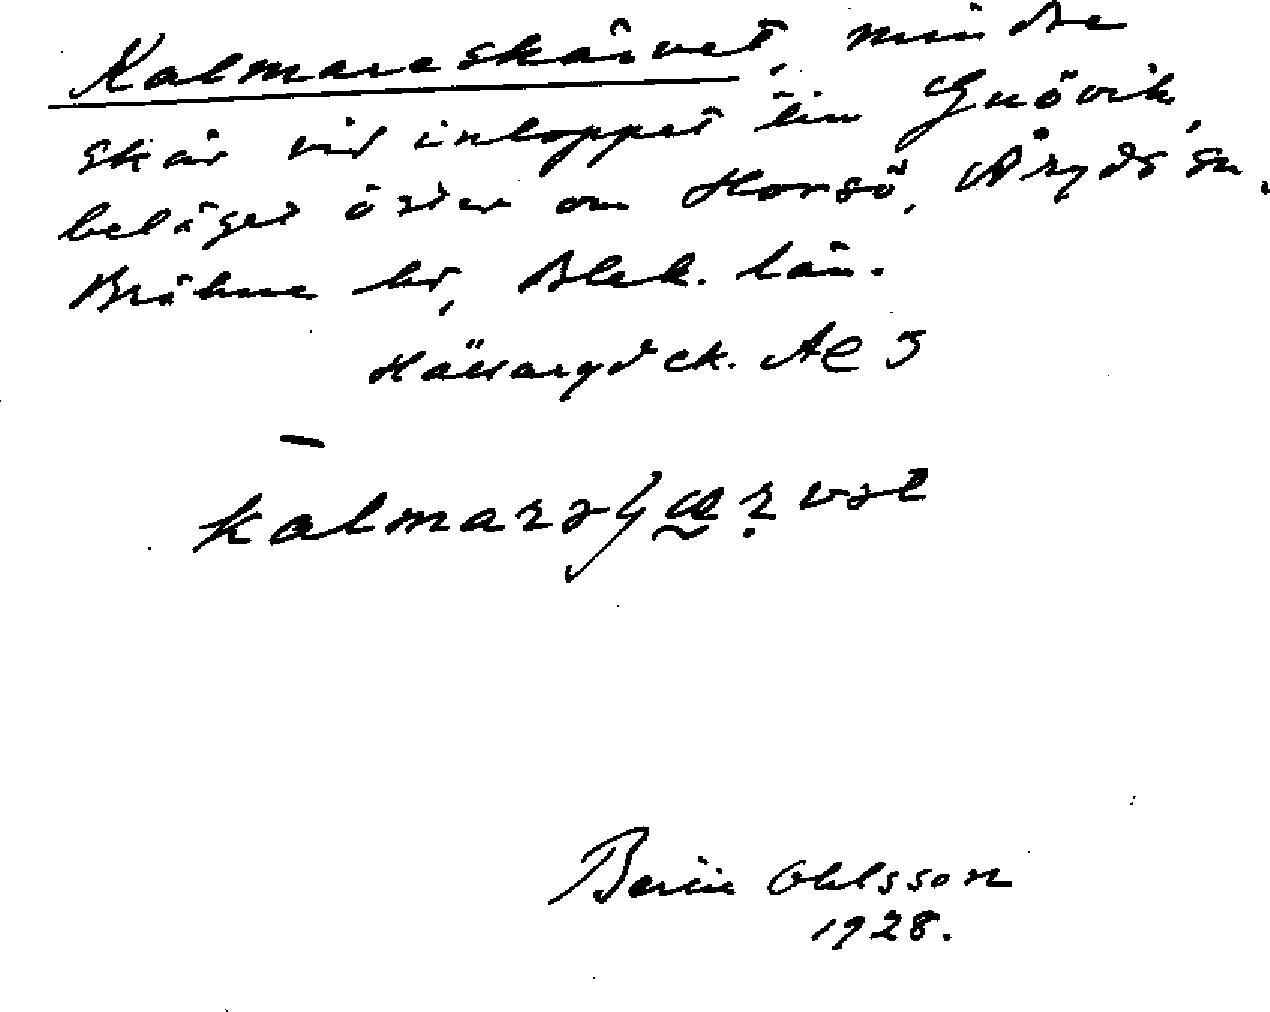 Kalmareskärvet, mindre
skär vid inloppet till Gnövik,
beläget öster om Horsö, Åryds sn.
Bräkne hd, Blek. län.
Hällaryd ek. Ae 5
Bertil Ohlsson
1928.